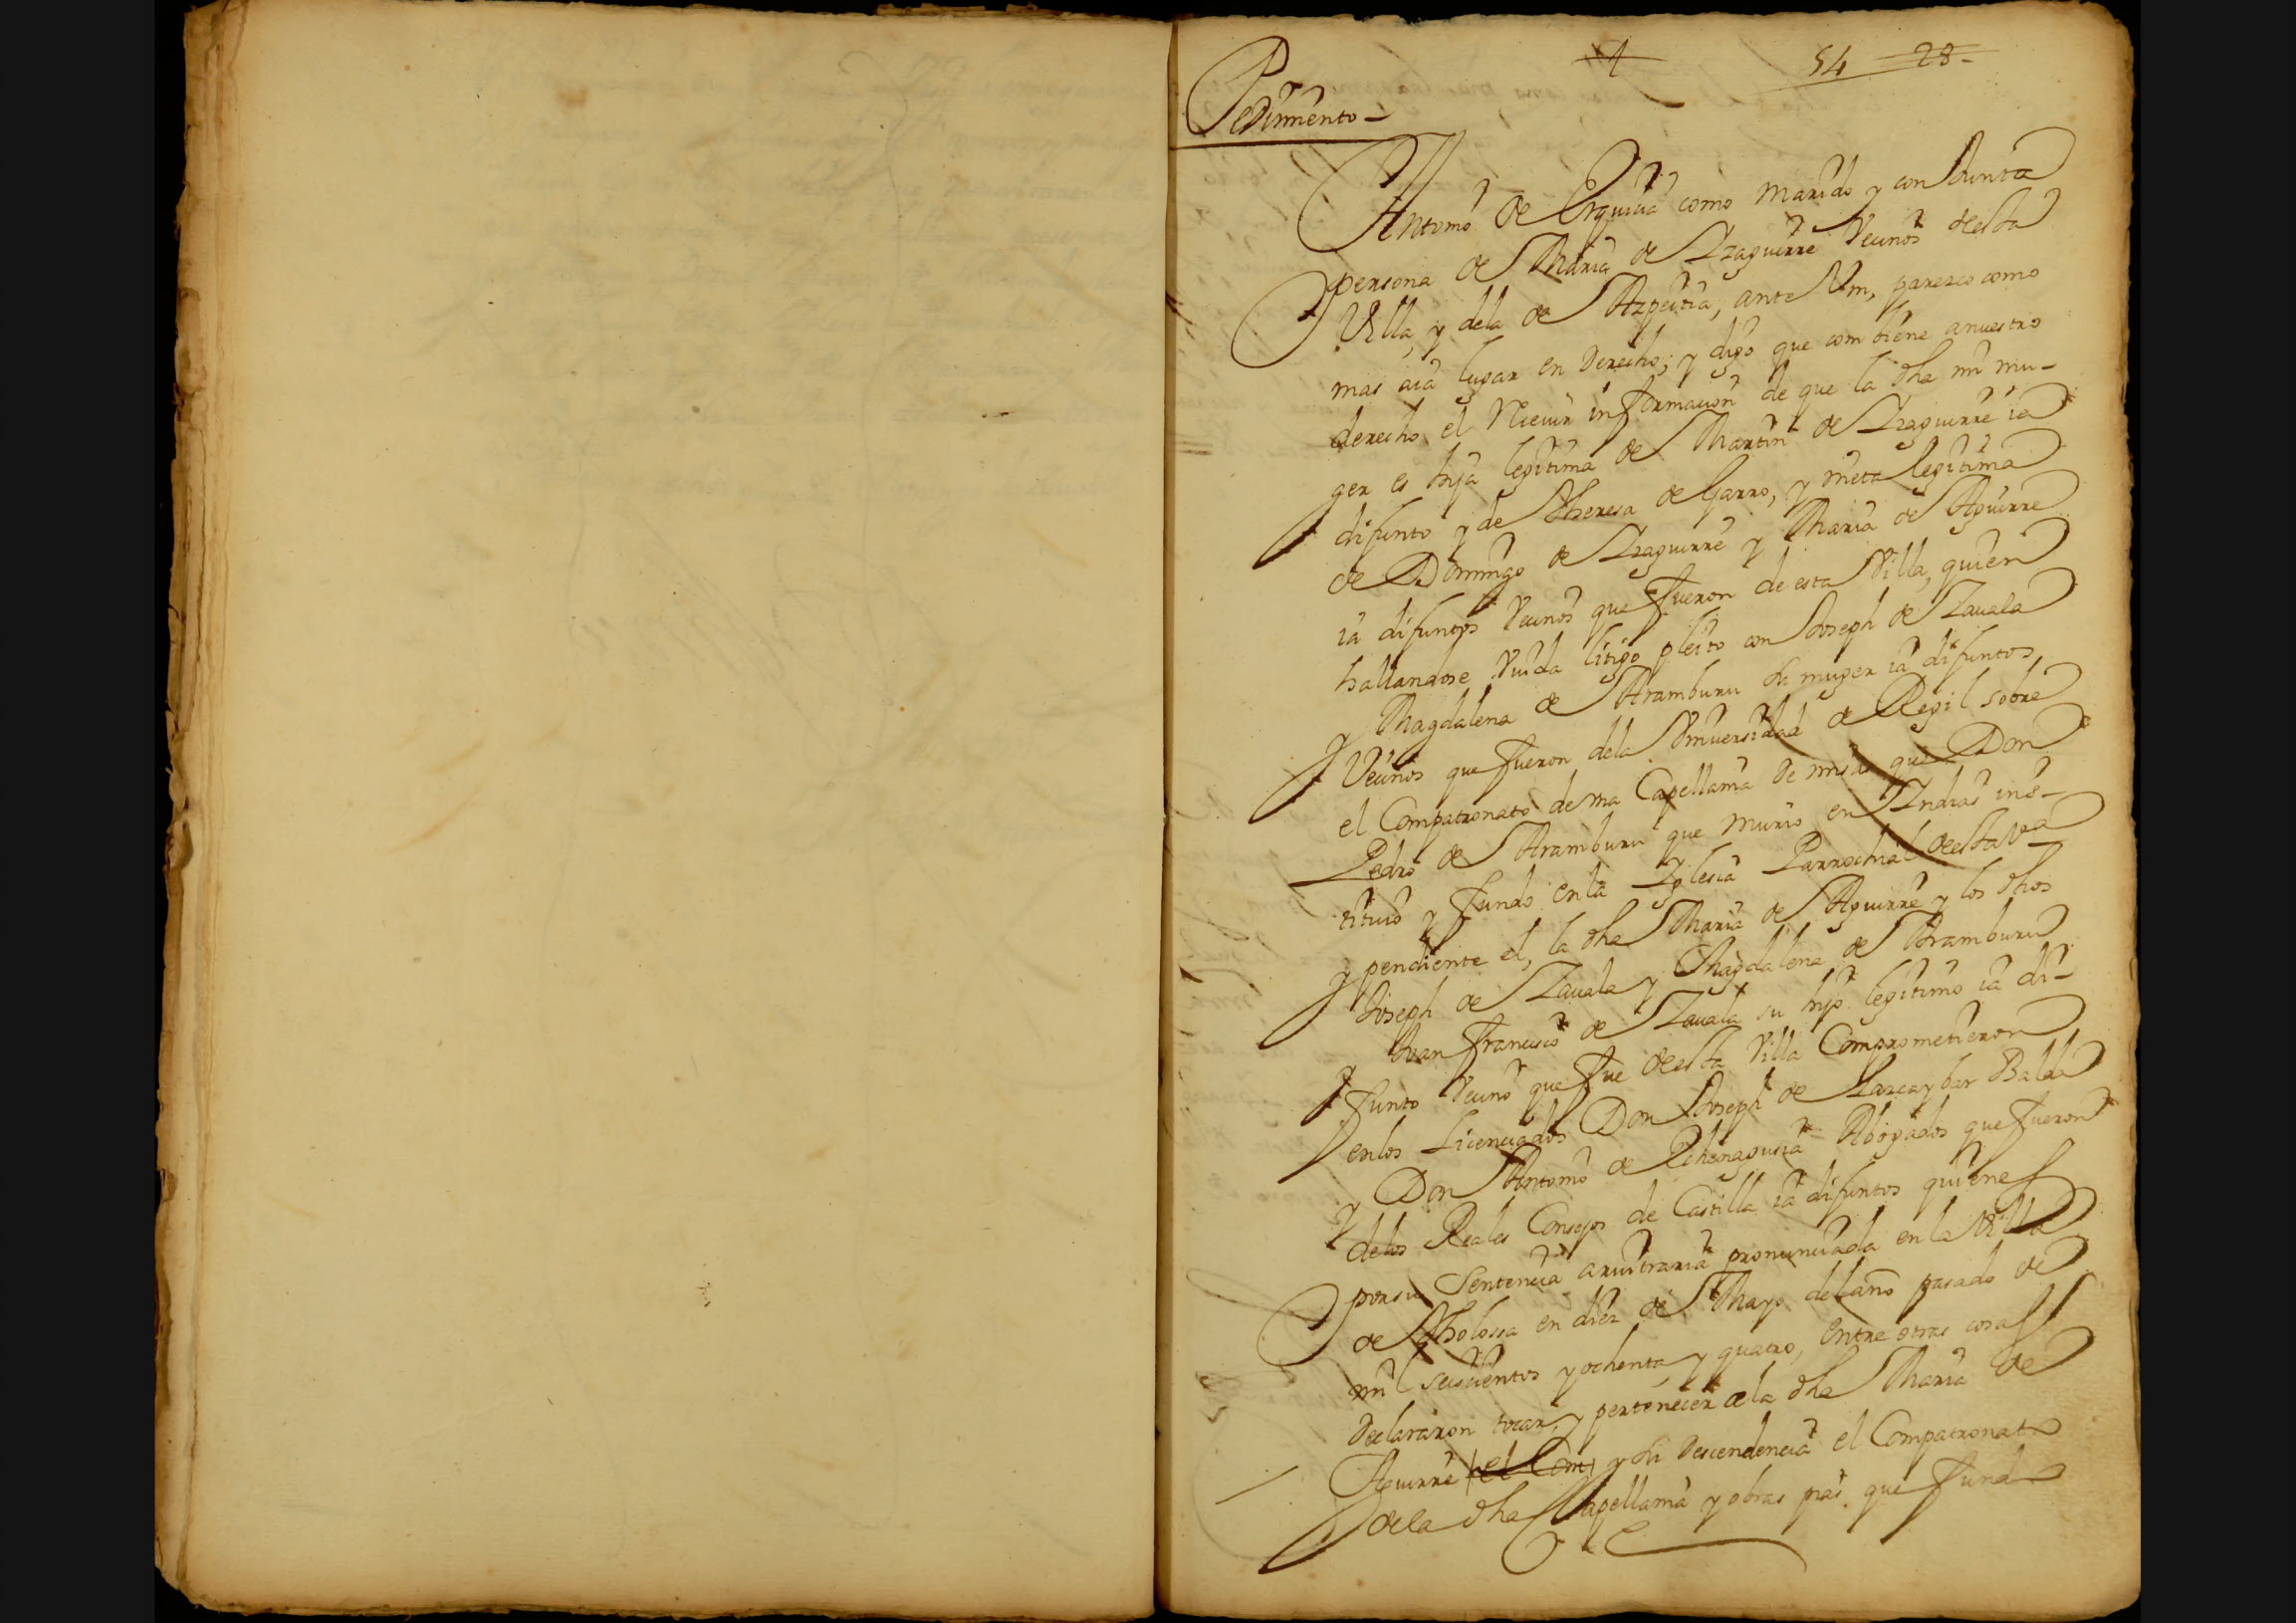 1 54 28
Pedimento
Antonio de Urquiça como marido y conJunta
persona de Maria de Yzaguirre Vecinos desta
Villa, y dela de Azpeitia, ante Vm, paresco como
mas aia lugar en Derecho, y digo que combiene anuestro
derecho el Recivir informacion de que la dha mi mu-
ger es hija legitima de Martin de Yzaguirre ia
difunto y de Theresa de Garro, y nieta legitima
de Domingo de Yzaguirre y Maria de Aguirre
ia difuntos Vecinos que fueron de esta Villa, quien
hallandose Viuda litigo pleito con Joseph de Zavala
y Magdalena de Aramburu su muger ia difuntos,
Vecinos que fueron dela Vniversidad de Regil sobre
el Compatronato de vna Capellania de misas que Don
Pedro de Aramburu que murio en Yndias ins-
tituio y fundo enla Yglesia Parrochial desta Va
y pendiente el, la dha Maria de Aguirre y los dhos
Joseph de Zavala y Magdalena de Aramburu
y Juan Francisco de Zavala su hijo legitimo ia di-
funto Vecino que fue desta Villa Comprometieron
enlos Licenciados Don Joseph de Larcaybar Balda
y Don Antonio de Echenagusia Abogados que fueron
delos Reales Consejos de Castilla ia difuntos quienes
por su Sentencia arvitraria pronunciada en la Villa
de Tholossa en diez de Mayo del año pasado de
mil seiscientos y ochenta y quatro, entre otras cosas
Declararon tocar, y pertenecer ala dha Maria de
Aguirre el Com y su Descendencia el Compatronato
dela dha Capellania y obras pias que fundo